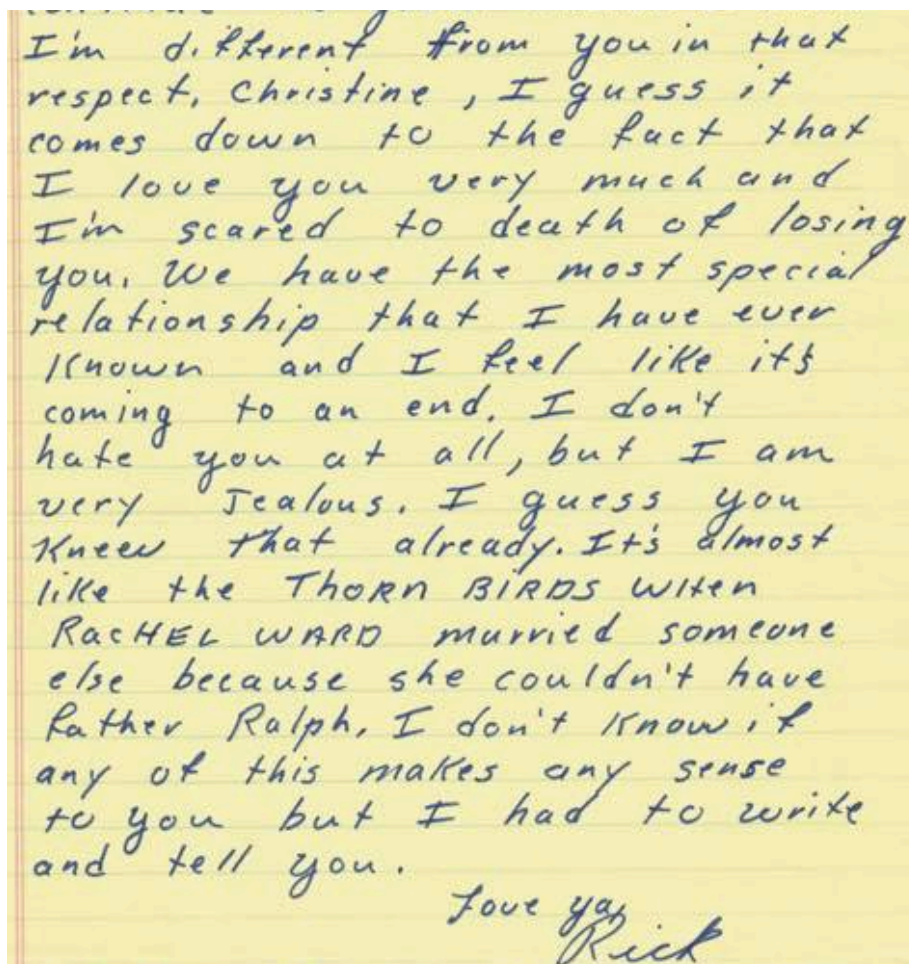 I'm different from you in that
respect, Christine, I guess it
comes down to the fact that
I love you very much and
I'm scared to death of losing
you. We have the most special
relationship that I have ever
known and I feel like it's
coming to an end. I don't
hate you at all, but I am
very Jealous. I guess you
Knew that already. It's almost
like the THORN BIRDS WHEN
RACHEL WARD married someone
else because she couldn't have
father Ralph. I don't know if
any of this makes any sense
to you but I had to write
and tell you.
Love ya,
Rick